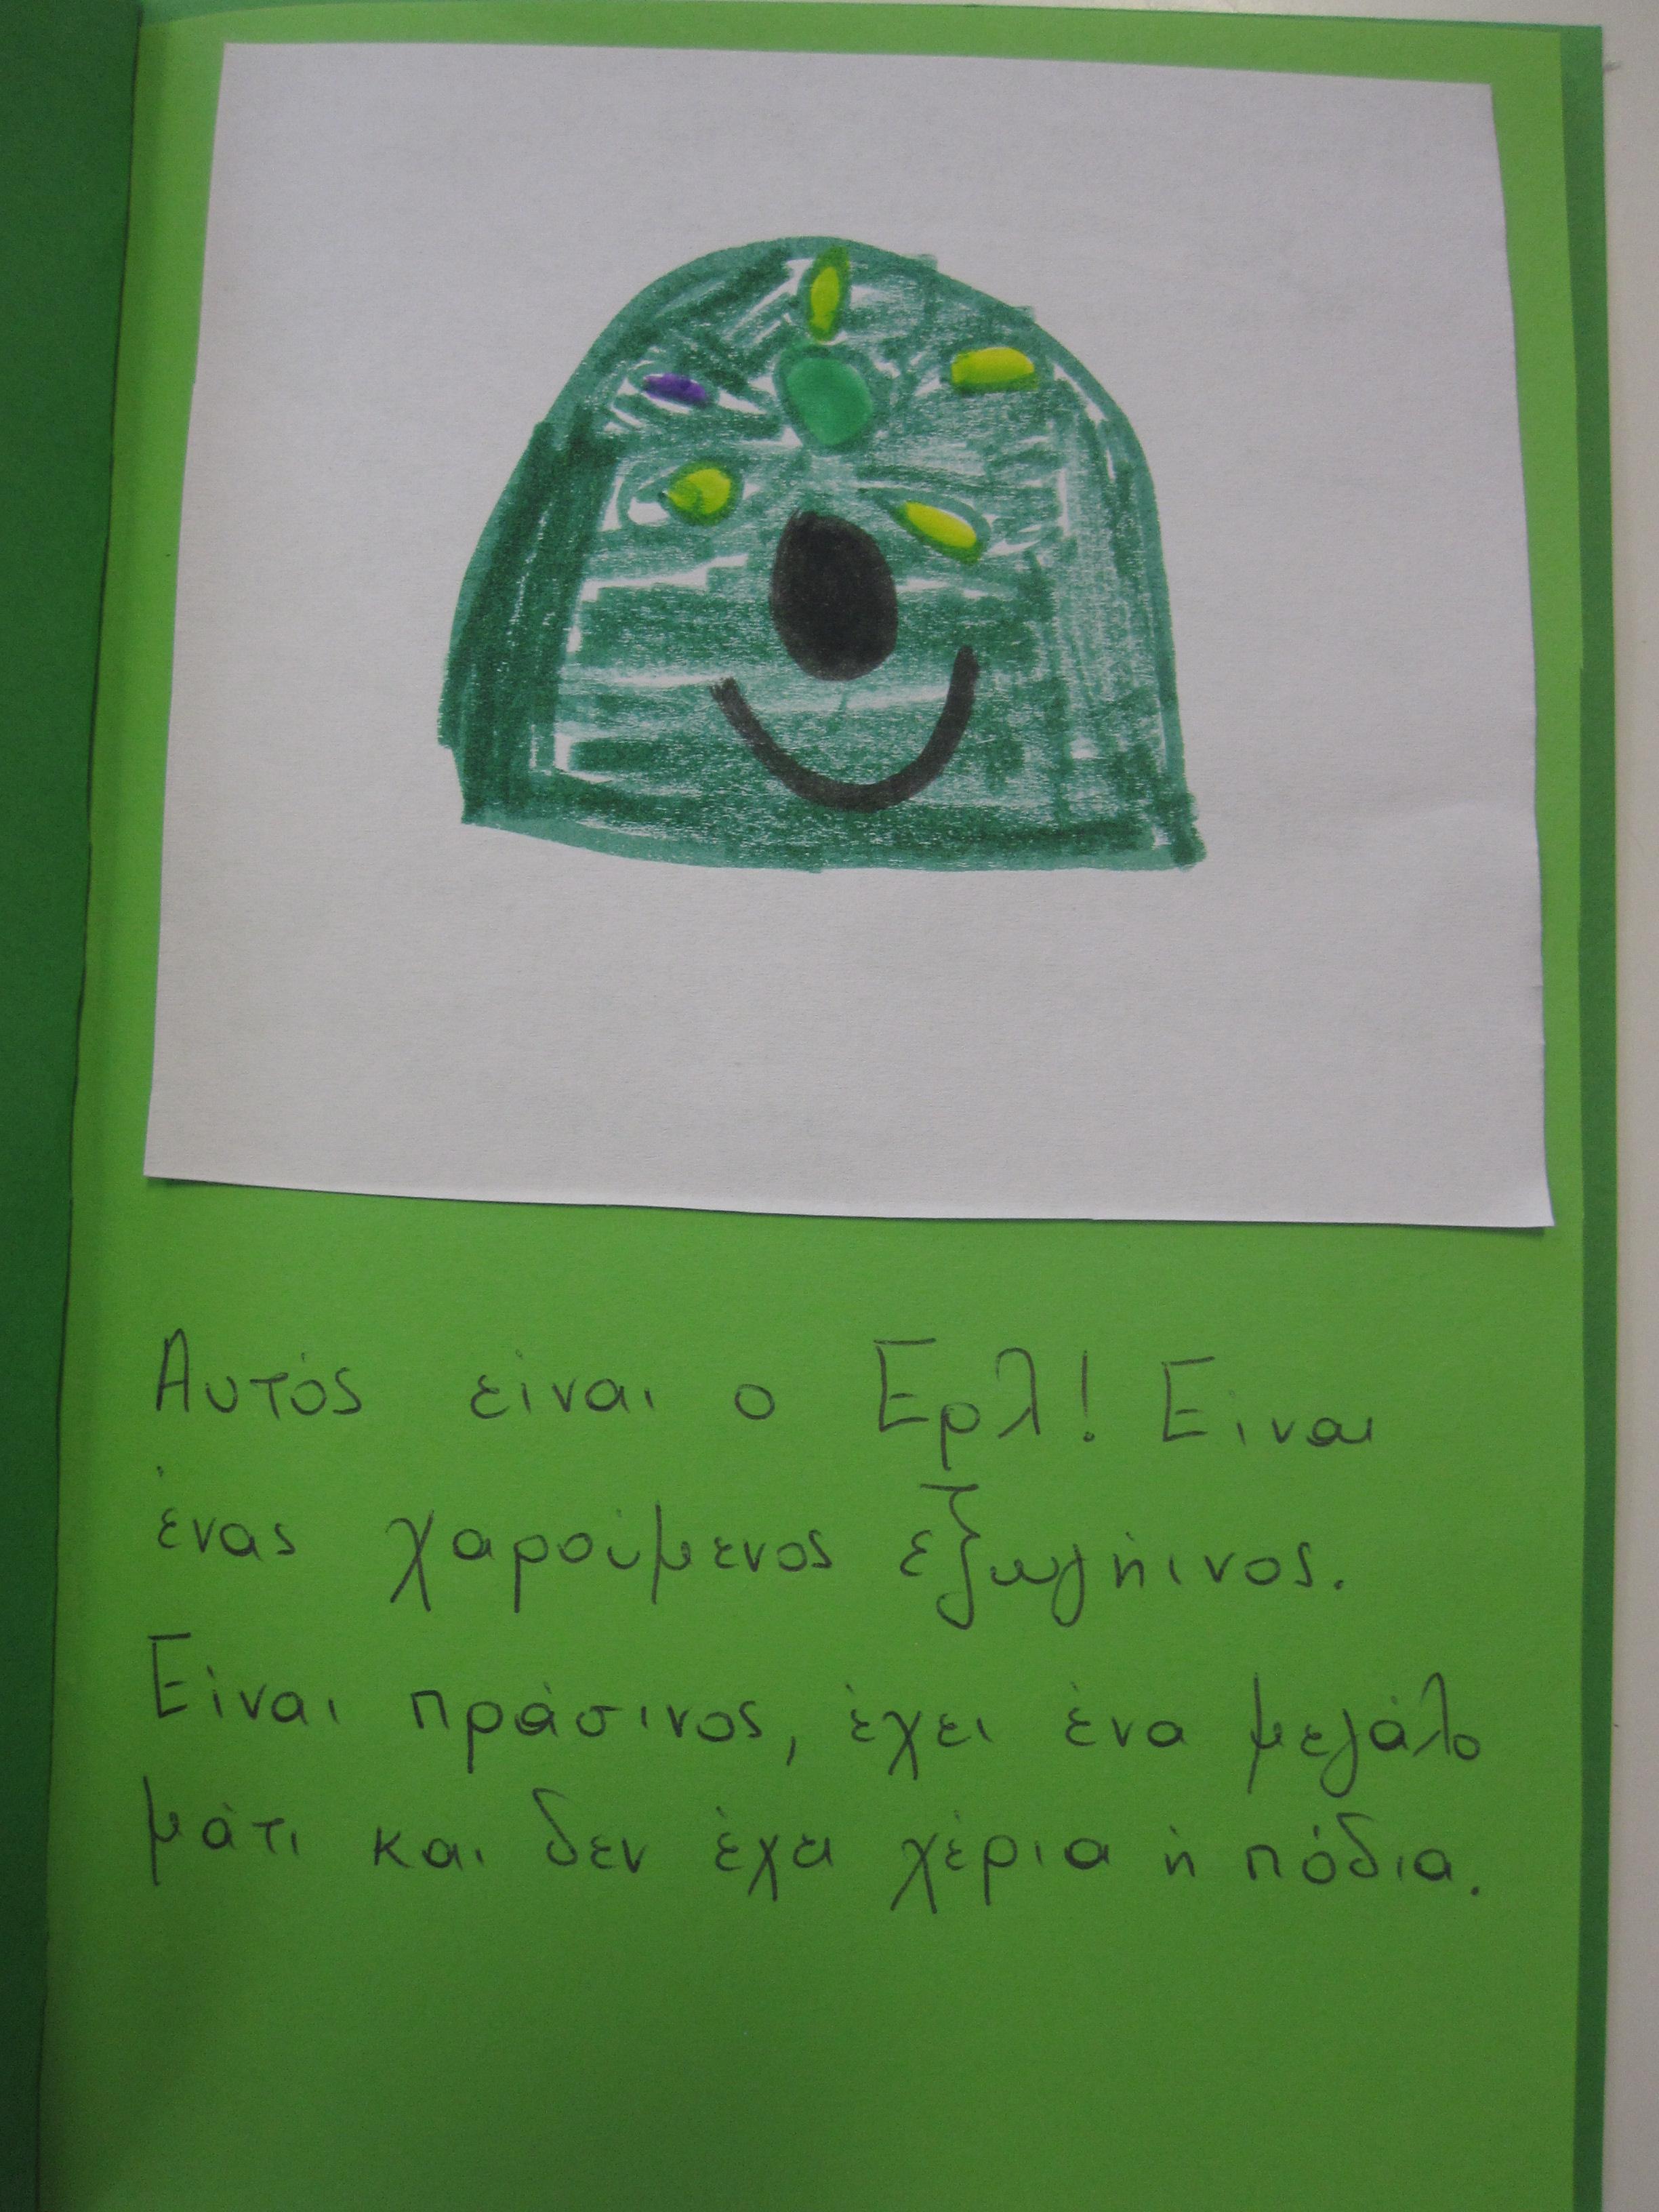 Αυτός είναι ο Ερλ! Είναι
ένας χαρούμενος εξωγήινος.
Είναι πράσινος, έχει ένα μεγάλο
μάτι και δεν έχει χέρια ή πόδια.